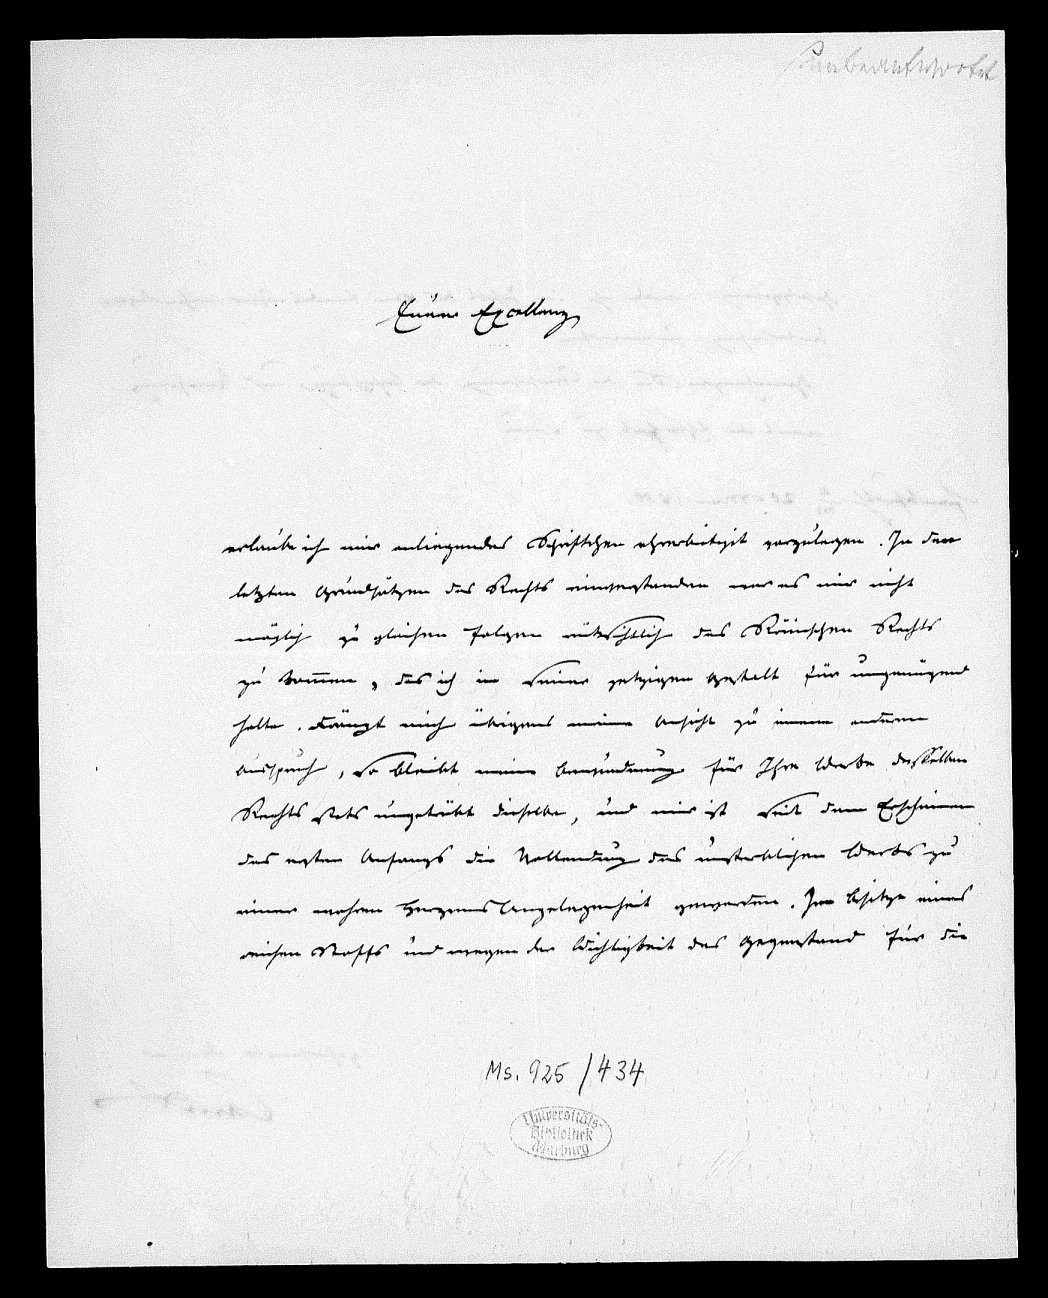 Unbeantwortet
Euer Excellenz
erlaube ich mir anliegendes Schriftchen ehrerbietigst vorzulegen. In den
letzten Grundsätzen des Rechts einverstanden war es mir nicht
möglich zu gleichen Folgen rücksichtlich des Römischen Rechts
zu kommen, das ich in seiner jetzigen Gestalt für ungenügend
halte. Drängt mich übrigens meine Ansicht zu einem anderen
Ausspruch, so bleibt meine Bewunderung für Ihre Werke desselben
Rechts stets ungetrübt dieselbe, und mir ist seit dem Erscheinen
des ersten Anfangs die Vollendung des unsterblichen Werks zu
einer wahren Herzens Angelegenheit geworden. Im Besitze eines
reichen Stoffs und wegen der Wichtigkeit des Gegenstand für die
Ms. 925/434
Universitäts-
Bibliothek
Marburg